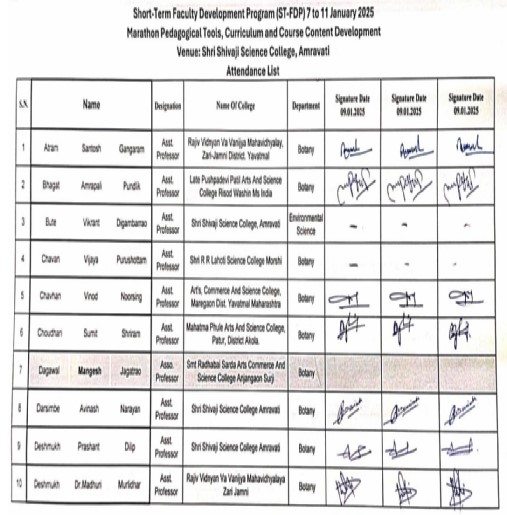 Short-Term Faculty Development Program (ST-FDP) 7 to 11 January 2025
Marathon Pedagogical Tools, Curriculum and Course Content Development
Venue: Shri Shivaji Science College, Amravati
Attendance List
S.N. Name Designation Name Of College Department Signature Date 09.01.2025 Signature Date 09.01.2025 Signature Date 09.01.2025
1 Atram Santosh Gangaram Asst. Professor Rajiv Vidnyan Va Vanijya Mahavidhyalay, Zari-Jamni District. Yavatmal Botany
2 Bhagat Amrapali Pundlik Asst. Professor Late Pushpadevi Patil Arts And Science College Risod Washin Ms India Botany
3 Bute Vikrant Digambarrao Asst. Professor Shri Shivaji Science College, Amravati Environmental Science - - -
4 Chavan Vijaya Purushottam Asst. Professor Shri R R Lahoti Science College Morshi Botany - - -
5 Chavhan Vinod Noorsing Asst. Professor Art's, Commerce And Science College, Maregaon Dist. Yavatmal Maharashtra Botany
6 Choudhari Sumit Shriram Asst. Professor Mahatma Phule Arts And Science College, Patur, District Akola. Botany
7 Dagawal Mangesh Jagatrao Asso. Professor Smt Radhabai Sarda Arts Commerce And Science College Anjangaon Surji Botany
8 Darsimbe Avinash Narayan Asst. Professor Shri Shivaji Science College Amravati Botany
9 Deshmukh Prashant Dilip Asst. Professor Shri Shivaji Science College Amravati Botany
10 Deshmukh Dr.Madhuri Murlidhar Asst. Professor Rajiv Vidnyan Va Vanijya Mahavidhyalaya Zari Jamni Botany